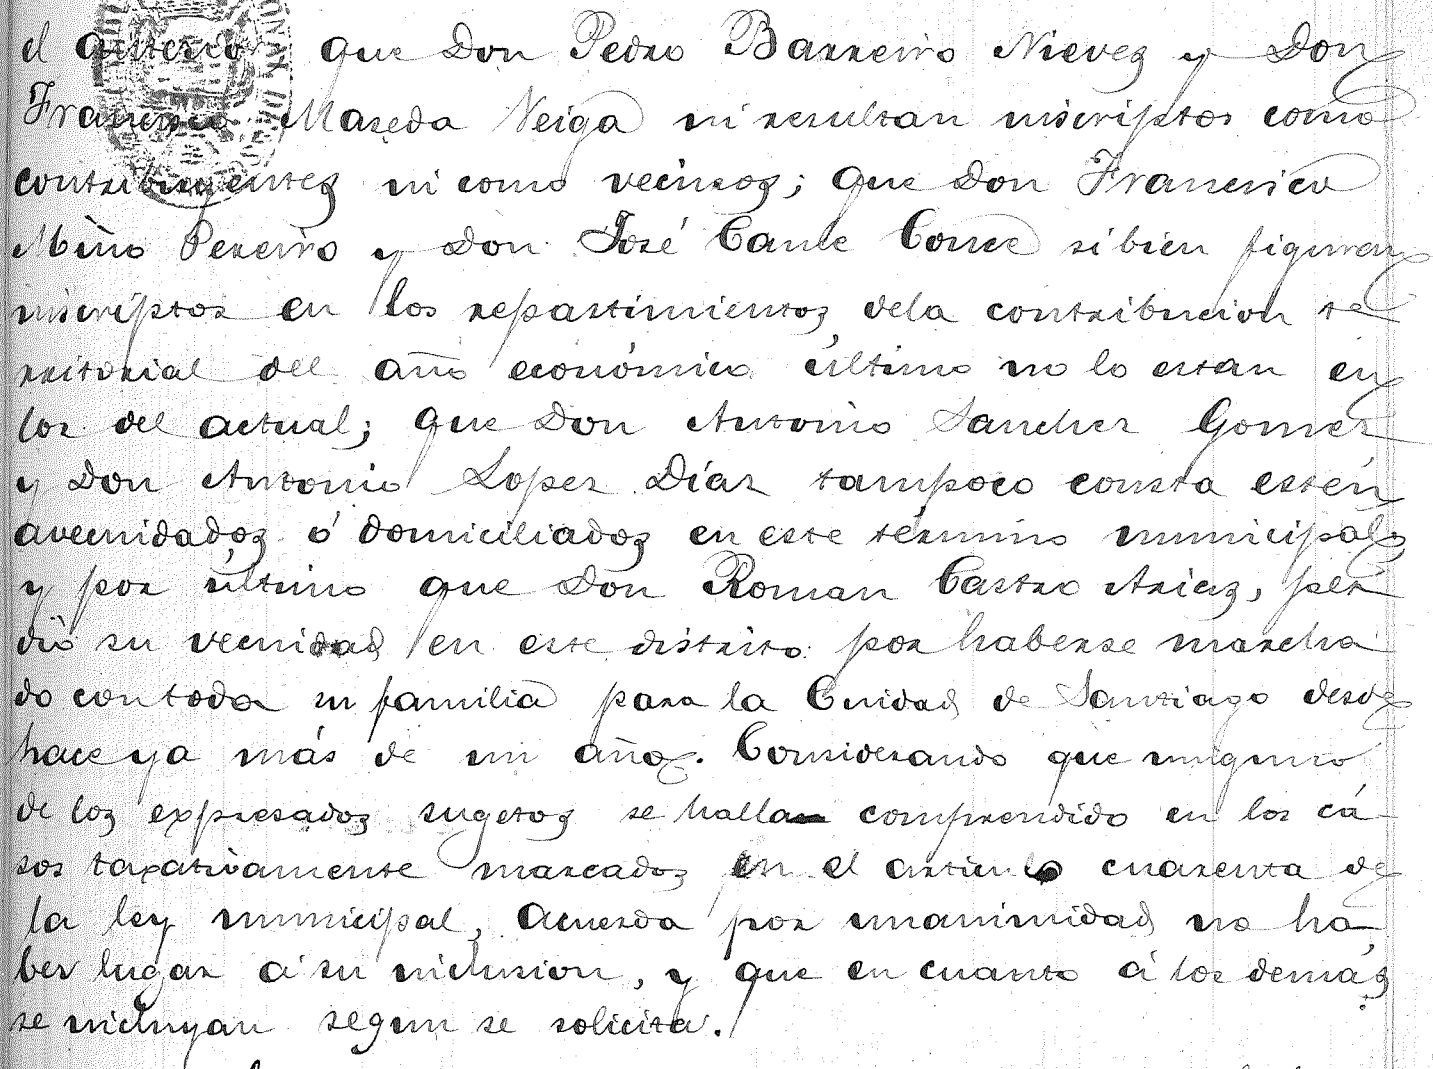 el anterior que Don Pedro Barreiro Nieves y Don
Francisco Maseda Neiga ni resultan inscriptos como
contribuyentes ni como vecinos; que Don Francisco
Miño Pereiro y Don José Cané Conce si bien figuran
inscriptos en los repartimientos dela contribucion te
rritorial del año económico último no lo estan en
los del actual; que Don Antonio Sanchez Gomez
y Don Antonio Lopez Díaz tampoco consta estén
avecindados ó domiciliados en este término municipal,
y por último que Don Roman Castro Arias, per
dió su vecindad en este distrito por haberse marcha
do con toda su familia para la Cuidad de Santiago desde
hace ya más de un año. Considerando que ninguno
de los expresados sugetos se halla comprendido en los cá-
sos taxativamente marcados en el articulo cuarenta de
la ley municipal, acuerda por unanimidad no ha-
ber lugar á su inclusion, y que en cuanto á los demás
se incluyan segun se solicita.